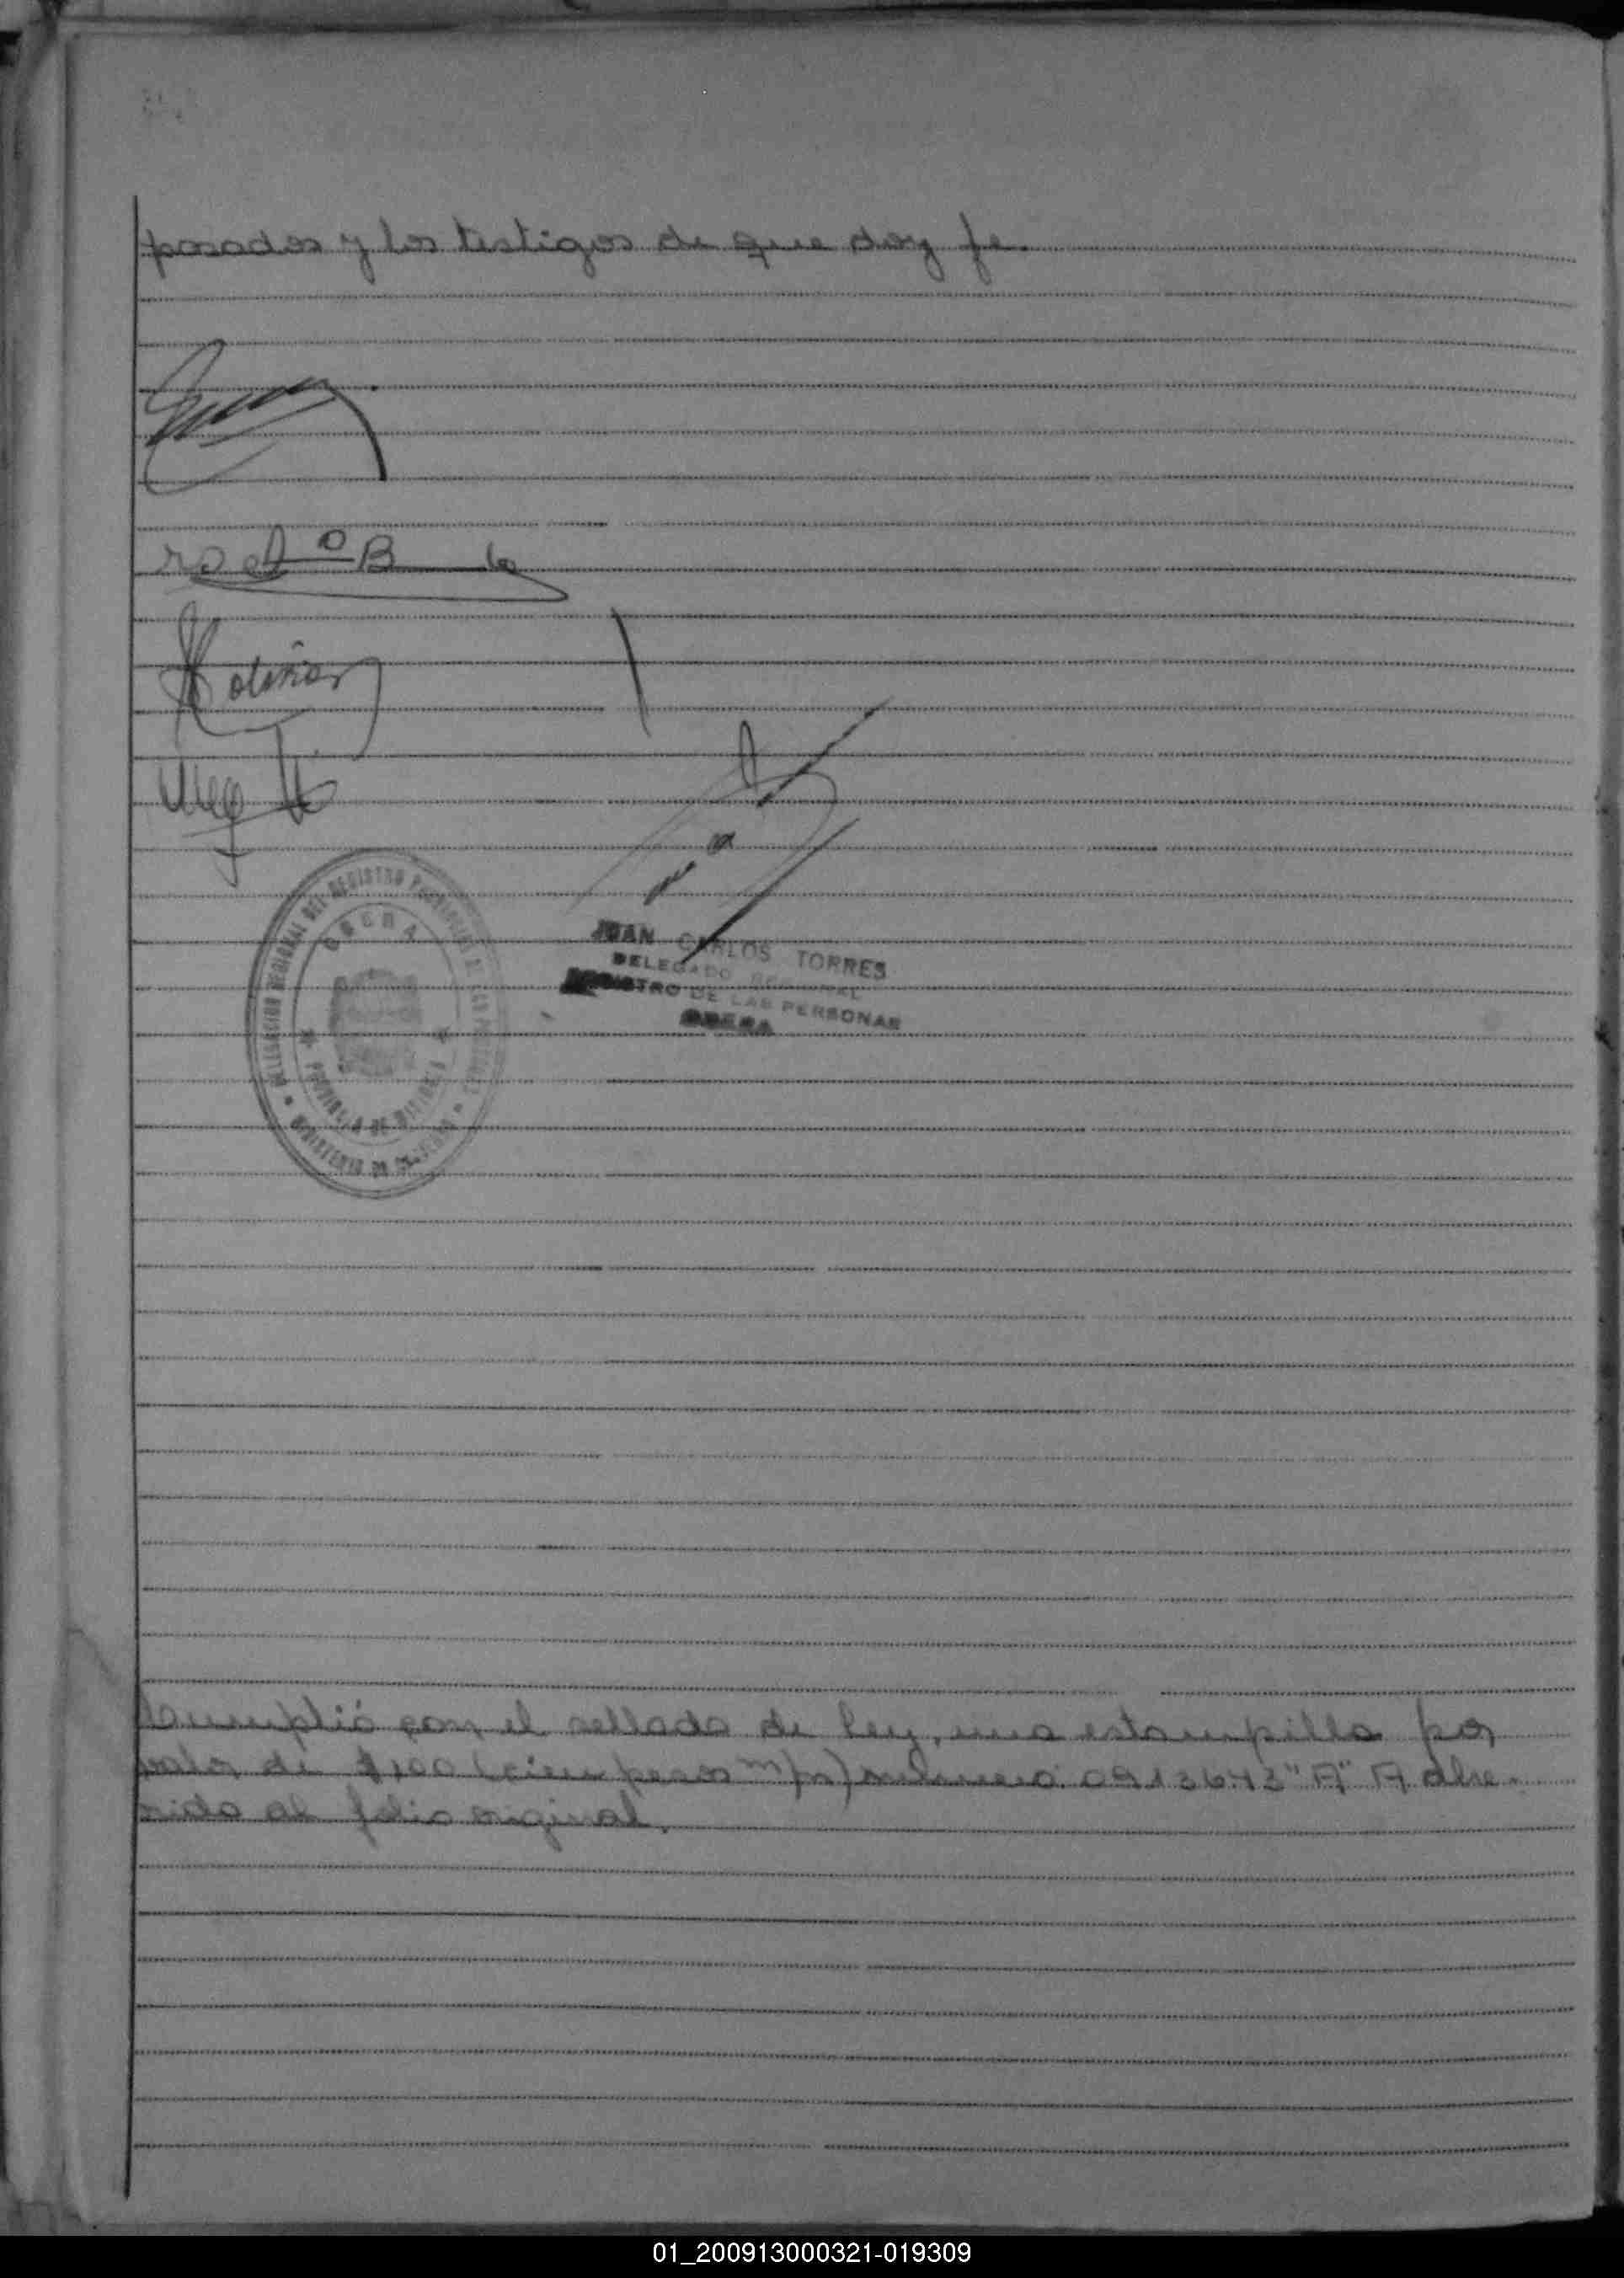 posados y los testigos de que doy fe.
DELEGACION REGIONAL DEL REGISTRO PROVINCIAL DE LAS PERSONAS
OBERA
PROVINCIA DE MISIONES
MINISTERIO DE GOBIERNO
JUAN CARLOS TORRES
DELEGADO REGIONAL
REGISTRO DE LAS PERSONAS
OBERA
Cumplió con el sellado de ley, una estampilla por
valor de $100 (cien pesos m/n) número "A" Adhe-
rida al folio original.
01_200913000321-019309